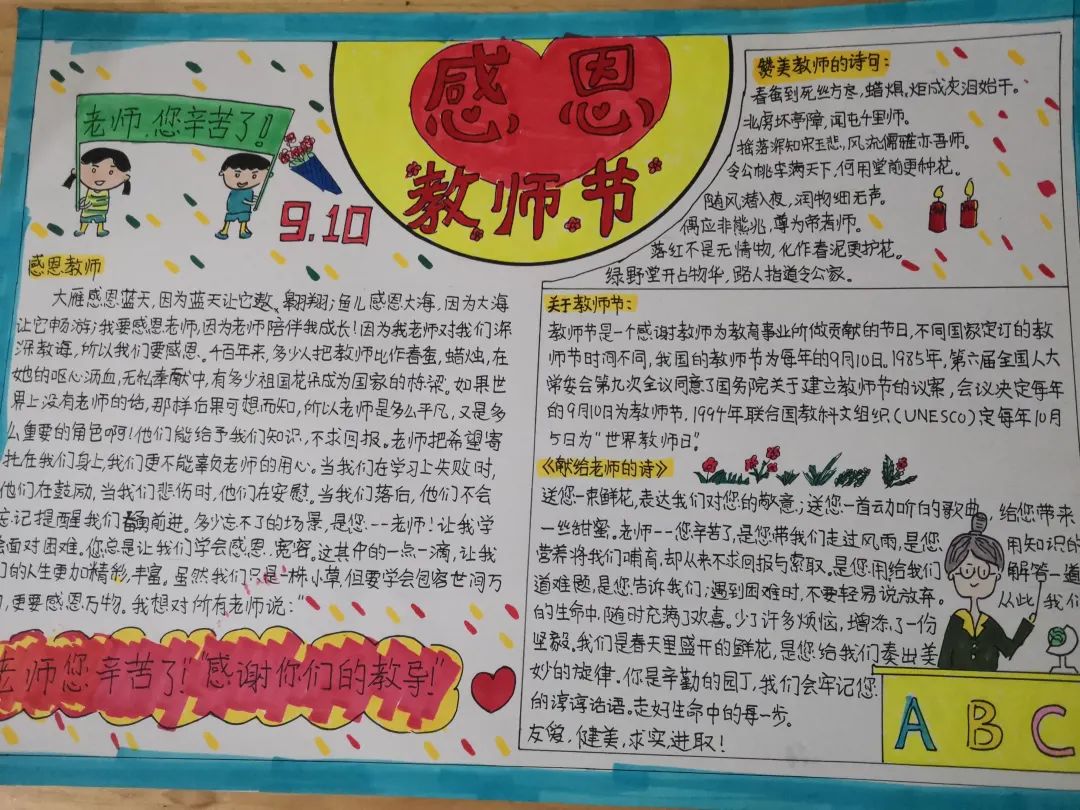 感恩
教师节
老师,您辛苦了!
9.10
感恩教师
大雁感恩蓝天,因为蓝天让它遨、翱翔;鱼儿感恩大海,因为大海
让它畅游;我要感恩老师,因为老师陪伴我成长!因为我老师对我们深
深教诲,所以我们要感恩。千百年来,多少人把教师比作春蚕,蜡烛,在
她的呕心沥血,无私奉献中,有多少祖国花朵成为国家的栋梁。如果世
界上没有老师的话,那样后果可想而知,所以老师是多么平凡,又是多
么重要的角色啊!他们能给予我们知识,不求回报。老师把希望寄
托在我们身上,我们更不能辜负老师的用心。当我们在学习上失败时,
他们在鼓励,当我们悲伤时,他们在安慰。当我们落后,他们不会
忘记提醒我们前进。多少忘不了的场景,是您--老师!让我学
会面对困难。您总是让我们学会感恩、宽容。这其中的一点一滴,让我
们的人生更加精彩,丰富。虽然我们只是一株小草但要学会包容世间万
,更要感恩万物。我想对所有老师说:“
老师您辛苦了!"感谢你们的教导!"
赞美教师的诗句:
春蚕到死丝方尽,蜡炬成灰泪始干。
北虏坏亭障,闻屯千里师。
摇落深知宋玉悲,风流儒雅亦吾师。
令公桃李满天下,何用堂前更种花。
随风潜入夜,润物细无声。
偶应非熊兆,尊为帝者师。
落红不是无情物,化作春泥更护花。
绿野堂开占物华,路人指道令公家。
关于教师节:
教师节是一个感谢教师为教育事业所做贡献的节日,不同国家定订的教
师节时间不同,我国的教师节为每年的9月10日。1985年,第六届全国人大
常委会第九次会议同意了国务院关于建立教师节的议案,会议决定每年
的9月10日为教师节,1994年联合国教科文组织(UNESCO)定每年10月
5日为“世界教师日”
《献给老师的诗》
送您一束鲜花,表达我们对您的敬意;送您一首动听的歌曲,给您带来
一丝甜蜜。老师--您辛苦了,是您带我们走过风雨,是您用知识的
营养将我们哺育,却从来不求回报与索取。是您用给我们解答一道
道难题,是您告诉我们;遇到困难时,不要轻易说放弃。从此我们
的生命中,随时充满了欢喜。少了许多烦恼,增添了一份
坚毅。我们是春天里盛开的鲜花,是您给我们奏出美
妙的旋律。你是辛勤的园丁,我们会牢记您
的谆谆话语。走好生命中的每一步。
友爱,健美,求实,进取!
A B C